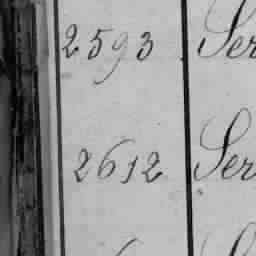 2593 Ser
2612 Ser